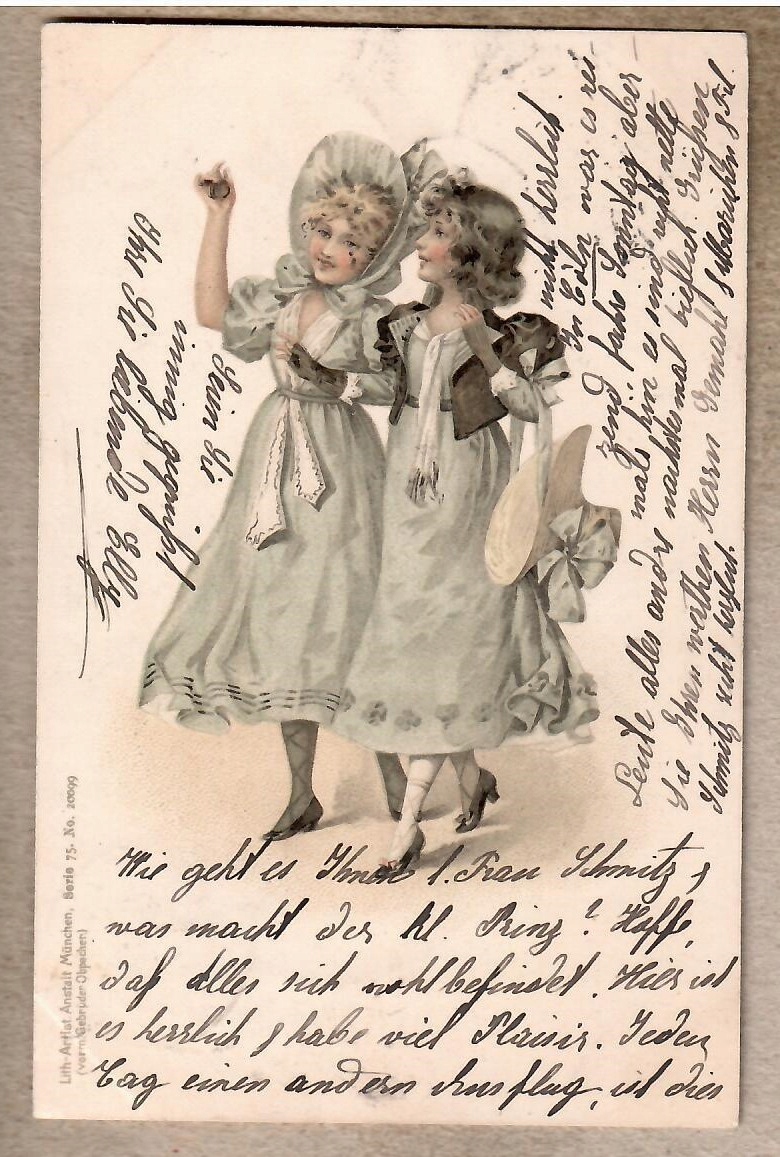 Wie geht es Ihnen l. Frau Schmitz,
was macht der kl. Prinz? Hoffe,
daß alles sich wohlbefindet. Hier ist
es herrlich & habe viel Plaisir. Jeden
Tag einen andern Ausflug, ist dies
nicht herrlich.
In Cöln war es rei-
zend, fahre Sonntag aber
mals hin, es sind recht nette
Leute alles andr nächstesmal brieflich. Grüßen
Sie Ihren werthen Herrn Gemahl & Frl.
Schmitz recht
Sein Sie
innig gegrüßt
Ihr Sie liebende Elly
Lith-Artist Anstalt München, Serie 75. No. 20099
(vorm. Gebrüder Obpacher)